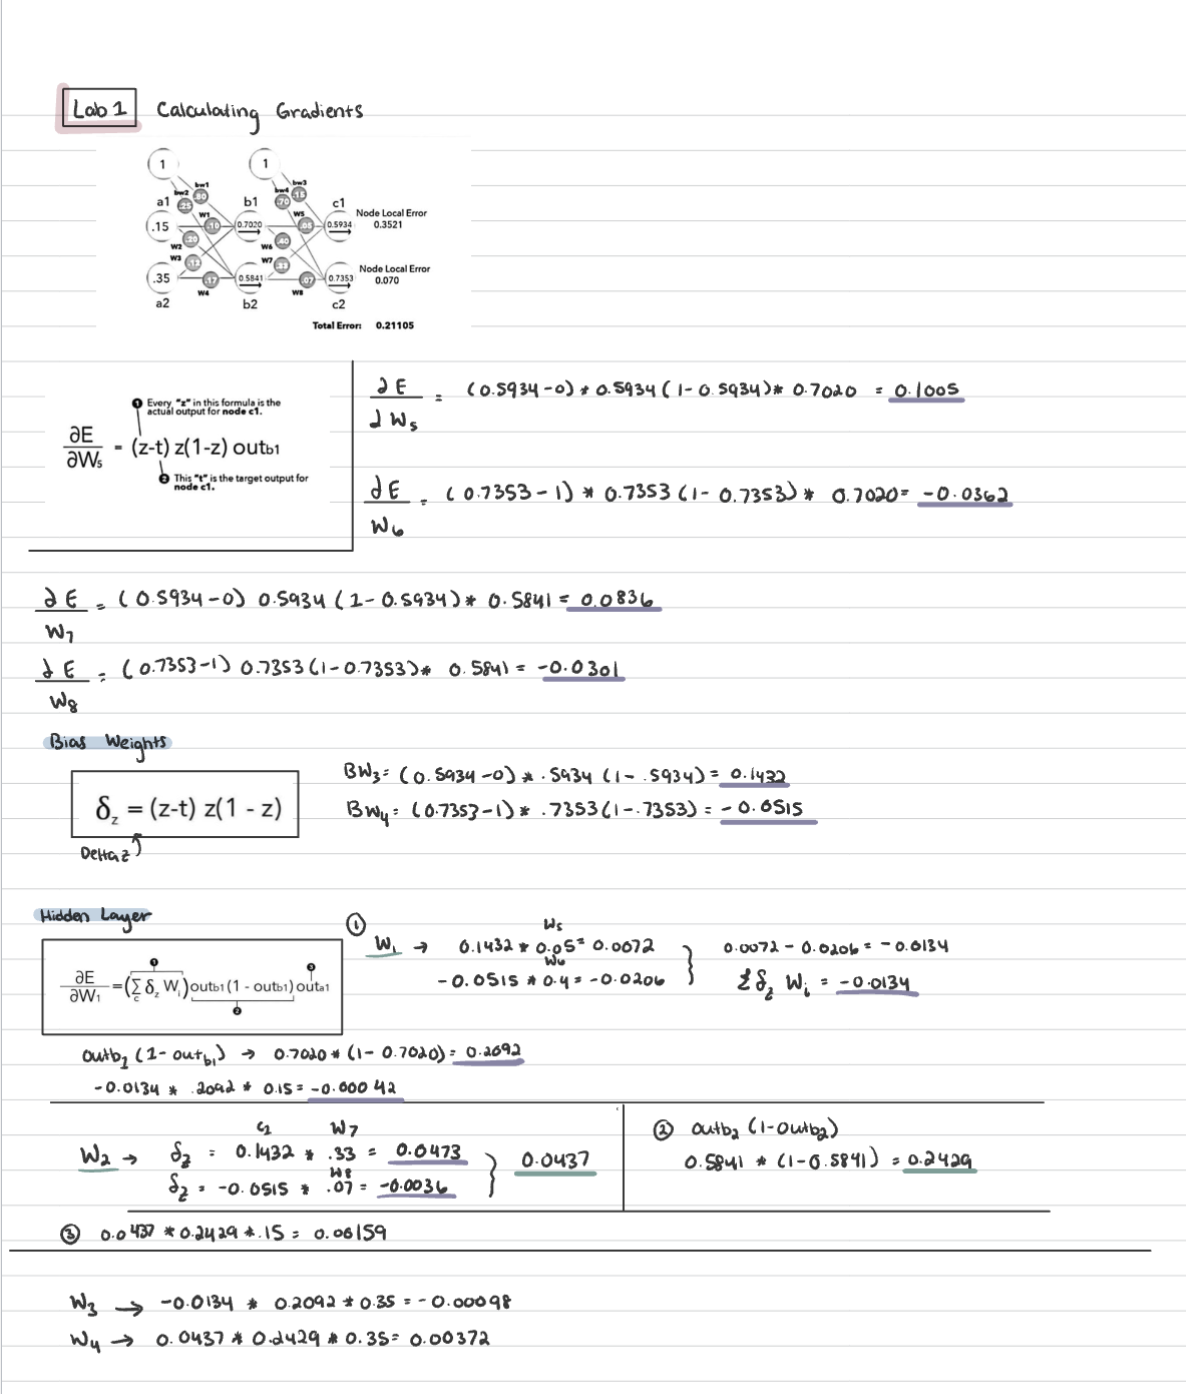 Lab 1 Calculating Gradients
1 1
bw2 bw1 bw4 bw3
a1 .25 b1 .70 c1
Node Local Error
W1 W5
.15 .10 0.7020 .05 0.5934 0.3521
W2 .20 W6 .40
W3 W7
Node Local Error
.35 0.5841 .07 0.7353 0.070
W4 W8
a2 b2 c2
Total Error: 0.21105
1 Every "z" in this formula is the
actual output for node c1.
∂E/∂W5 = (z-t) z(1-z) outb1
2 This "t" is the target output for
node c1.
∂E/∂W5 = (0.5934-0) * 0.5934 (1-0.5934) * 0.7020 = 0.1005
∂E/W6 = (0.7353-1) * 0.7353 (1-0.7353) * 0.7020 = -0.0362
∂E/W7 = (0.5934-0) 0.5934 (1-0.5934) * 0.5841 = 0.0836
∂E/W8 = (0.7353-1) 0.7353 (1-0.7353) * 0.5841 = -0.0301
Bias Weights
δz = (z-t) z(1 - z)
Delta z
BW3 = (0.5934-0) * .5934 (1-.5934) = 0.1432
BW4 = (0.7353-1) * .7353 (1-.7353) = -0.0515
Hidden Layer
∂E/∂W1 = (∑ δz Wi) outb1 (1 - outb1) outa1
c
1 2 3
① W1 → 0.1432 * 0.05 = 0.0072
W5
-0.0515 * 0.4 = -0.0206
W6
0.0072 - 0.0206 = -0.0134
Σδz Wi = -0.0134
outb1 (1-outb1) → 0.7020 * (1-0.7020) = 0.2092
-0.0134 * .2092 * 0.15 = -0.00042
W2 → δz = 0.1432 * .33 = 0.0473
W7
δz = -0.0515 * .07 = -0.0036
W8
0.0437
② outb2 (1-outb2)
0.5841 * (1-0.5841) = 0.2429
③ 0.0437 * 0.2429 * .15 = 0.00159
W3 → -0.0134 * 0.2092 * 0.35 = -0.00098
W4 → 0.0437 * 0.2429 * 0.35 = 0.00372